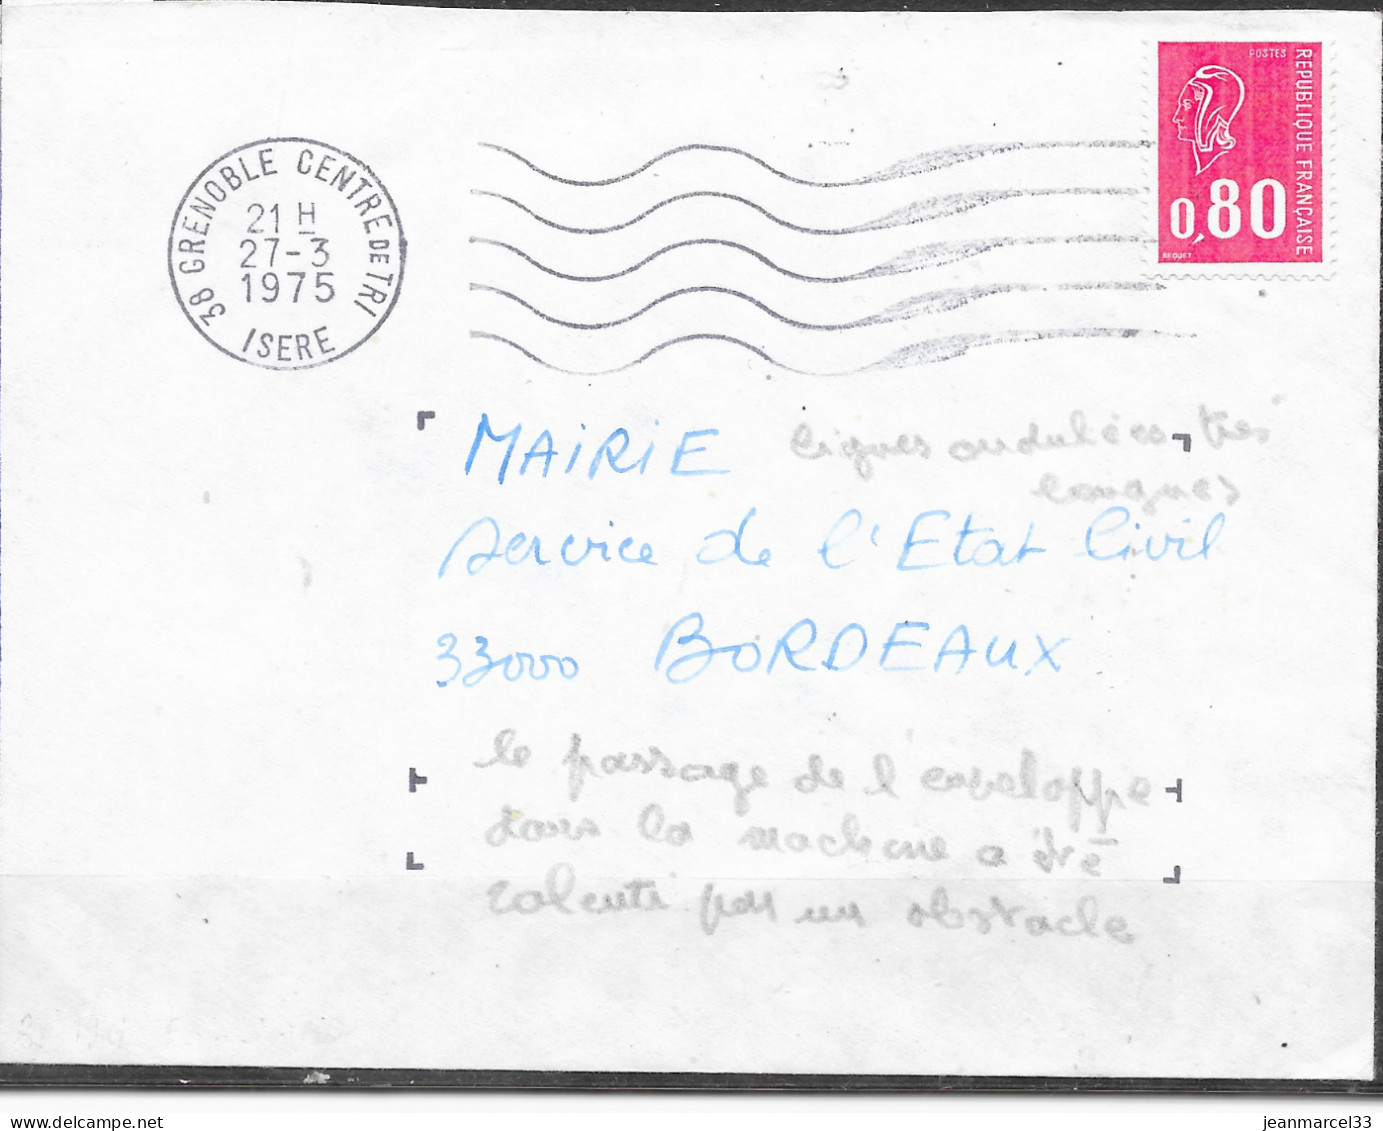 POSTES
REPUBLIQUE FRANÇAISE
0,80
BEQUET
38 GRENOBLE CENTRE DE TRI
21 H
27-3
1975
ISERE
MAIRIE
lignes ondulées très
longues
Service de l'Etat Civil
33000 BORDEAUX
le passage de l'enveloppe
dans la machine a été
ralenti par un obstacle
delcampe.net
jeanmarcel33